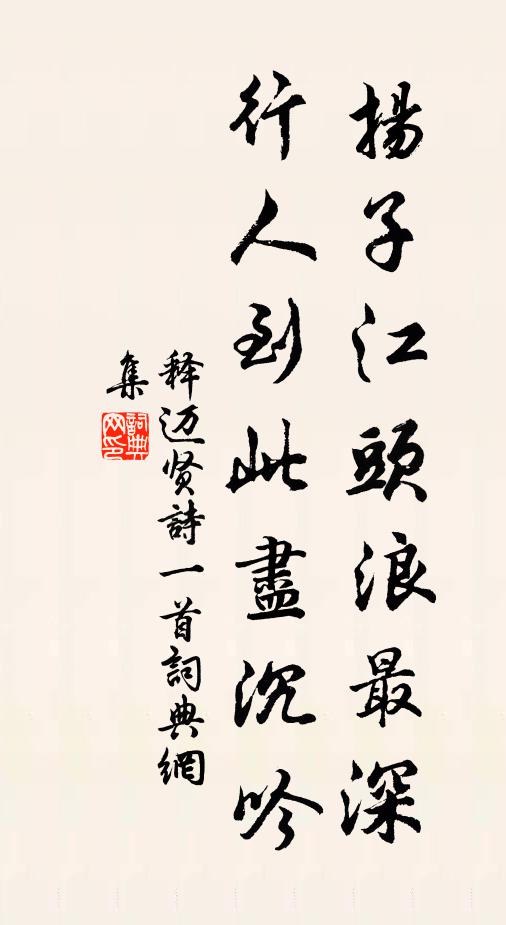 揚子江頭浪最深
行人到此盡沉吟
释迈贤詩一首詞典網
集
詞典網印